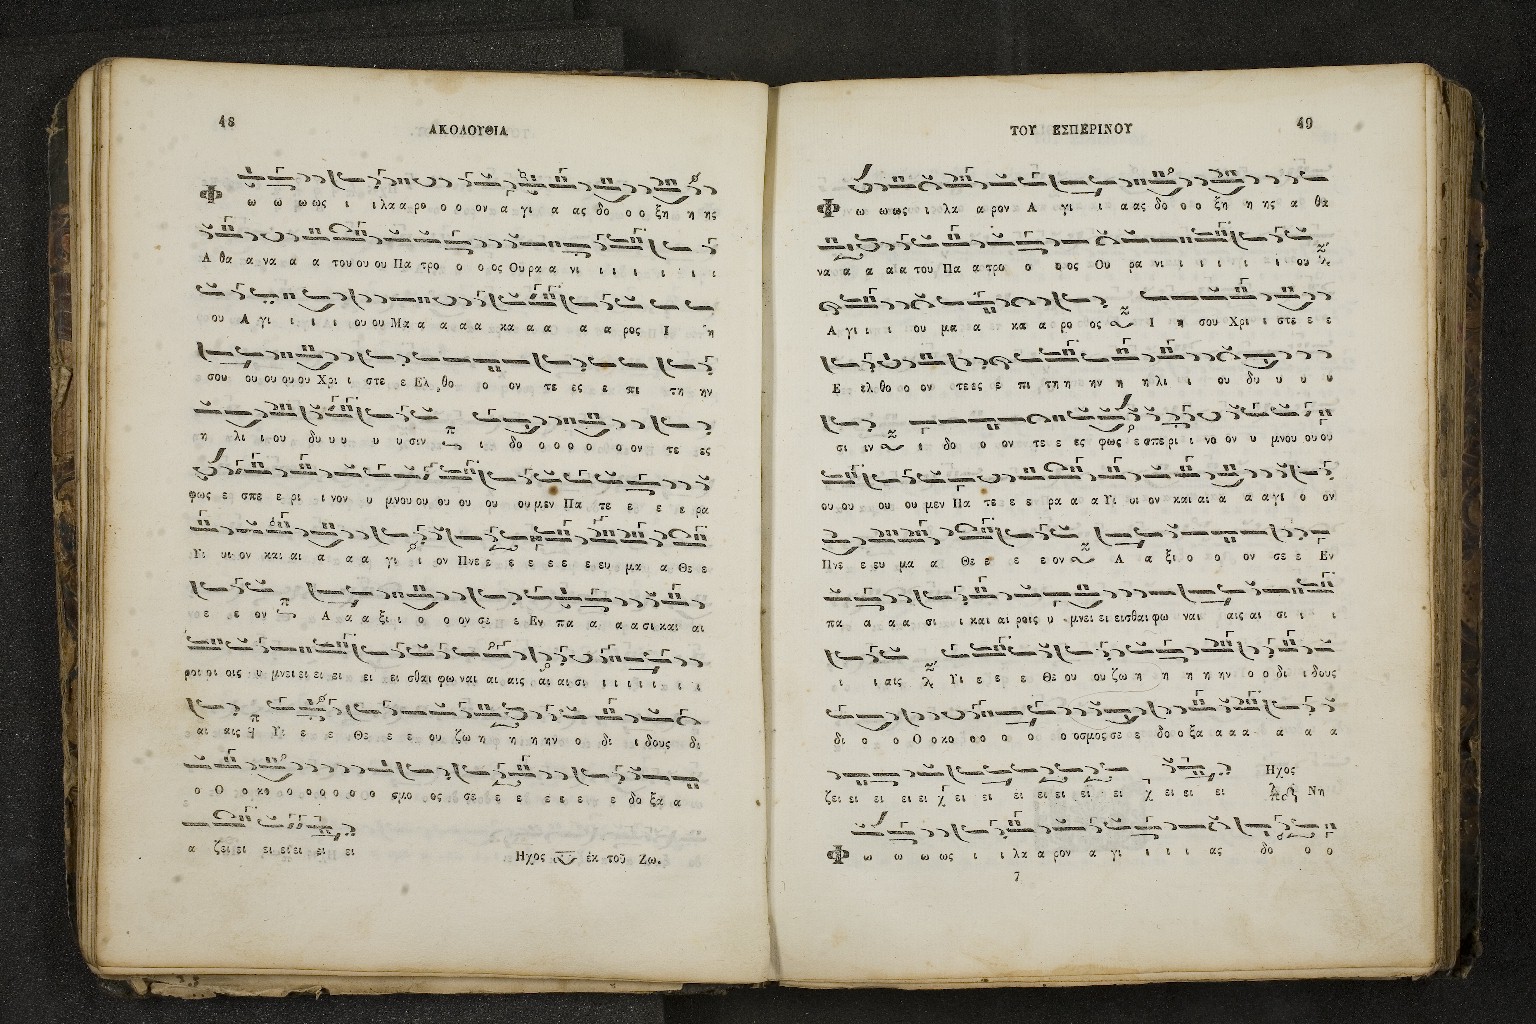 48
ΑΚΟΛΟΥΘΙΑ
Φ ω ω ω ως ι ι λα α ρο ο ο ον α γι α ας δο ο ο ξη η ης
Α θα α να α α του ου ου Πα τρο ο ο ος Ου ρα α νι ι ι ι ι ι ι
ου Α γι ι ι ι ου ου Μα α α α α κα α α α α ρος Ι η
σου ου ου ου ου Χρι ι στε ε Ελ θο ο ον τε ες ε πι τη ην
η λι ι ου δυ υ υ υ υ σιν ι δο ο ο ο ο ο ον τε ες
φως ε σπε ε ρι ι νον υ μνου ου ου ου ου ου μεν Πα τε ε ε ε ρα
Υι υι ον και αι α α α γι ι ον Πνε ε ε ε ε ε ε ευ μα α Θε ε
ε ε ον Α α α ξι ι ο ο ον σε ε Εν πα α α α σι και αι
ροι οι οις υ μνει ει ει ει ει ει σθαι φω ναι αι αις αι αι σι ι ι ι ι ι ι
αι αις Υι ε ε Θε ε ε ου ζω η η η ην ο δι ι δους δι
ο Ο ο κο ο ο ο ο ο ο σμο ος σε ε ε ε ε ε ε δο ξα α
α ζει ει ει ει ει ει ει
Ηχος ἐκ τοῦ Ζω.
ΤΟΥ ΕΣΠΕΡΙΝΟΥ
49
Φ ω ω ως ι λα α ρον Α γι ι α ας δο ο ο ξη η ης α θα
να α α α α του Πα α τρο ο ο ος Ου ρα νι ι ι ι ι ι ου
Α γι ι ι ου μα α κα α ρο ος Ι η σου Χρι ι στε ε ε
Ε ελ θο ο ον τε ες ε πι τη η ην η η λι ι ου δυ υ υ υ
σι ιν ι δο ο ον τε ε ες φως ε σπε ρι ι νο ον υ μνου ου ου
ου ου ου ου μεν Πα τε ε ε ρα α α Υι οι ον και αι α α α γι ο ον
Πνε ε ευ μα α Θε ε ε ε ον Α α ξι ο ο ον σε ε Εν
πα α α α σι ι και αι ροις υ μνει ει εισθαι φω ναι αις αι σι ι ι
ι ι αις Υι ε ε ε Θε ου ου ζω η η η η ην ο ο δι ι δους
δι ο ο Ο ο κο ο ο ο ο ο οσμος σε ε δο ο ξα α α α α α α
ζει ει ει ει ει χ ει ει ει ει ει ει ει χ ει ει ει
Ηχος
Νη
Φ ω ω ω ως ι ι λα α ρον α γι ι ι ι ας δο ο ο
7